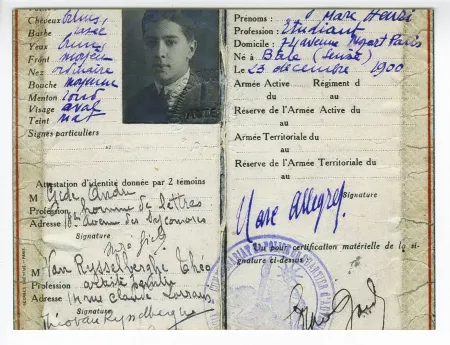 Cheveux bruns
Barbe rasé
Yeux bruns
Front moyen
Nez ordinaire
Bouche moyenne
Menton rond
Visage oval
Teint mat
Signes particuliers
Attestation d'identité donnée par 2 témoins
M Gide André
Profession homme de lettres
Adresse 18bis avenue des Sycomores
Signature
M Van Rysselberghe Théo
Profession artiste peintre
Adresse rue Claude Lorrain
Signature
Théo van Rysselberghe
Prénoms : Marc Henri
Profession : Etudiant
Domicile : 74 avenue Mozart Paris
Né à Bâle (Suisse)
Le 23 décembre 1900
Armée Active Régiment d
au
Réserve de l'Armée Active du
au
Armée Territoriale du
au
Réserve de l'Armée Territoriale du
au
Signature
Marc Allegret
Vu pour certification matérielle de la si-
gnature ci-dessus :